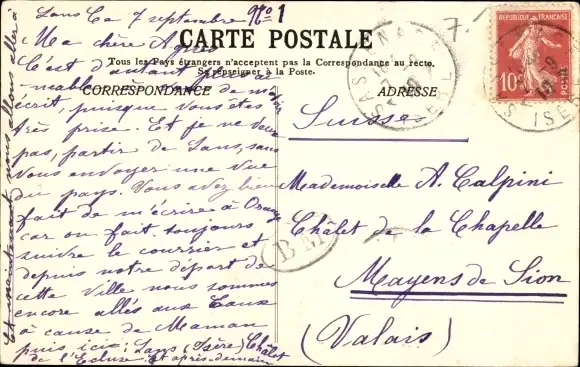 Lans Ce 7 septembre No 1
CARTE POSTALE
Tous les Pays étrangers n'acceptent pas la Correspondance au recto.
Se renseigner à la Poste.
CORRESPONDANCE
ADRESSE
Ma chère Agnès
C'est d'autant plus
aimable de m'avoir
écrit, puisque Vous êtes
très prise. Et je ne veux
pas, partir de Lans, sans
Vous envoyer une vue
du pays. Vous avez bien
fait de m'écrire à Orange
car on fait toujours
suivre le courrier et
depuis notre départ de
cette Ville nous sommes
encore allés aux Eaux
à cause de Maman
puis ici: Lans (Isère) Châlet
de l'Ecluse. Et après-demain
Et maintenant nous allons à
Suisse
Mademoiselle A. Calpini
Châlet de la Chapelle
Mayens de Sion
(Valais)
BM
7.
REPUBLIQUE FRANÇAISE
10c
POSTES
ISERE